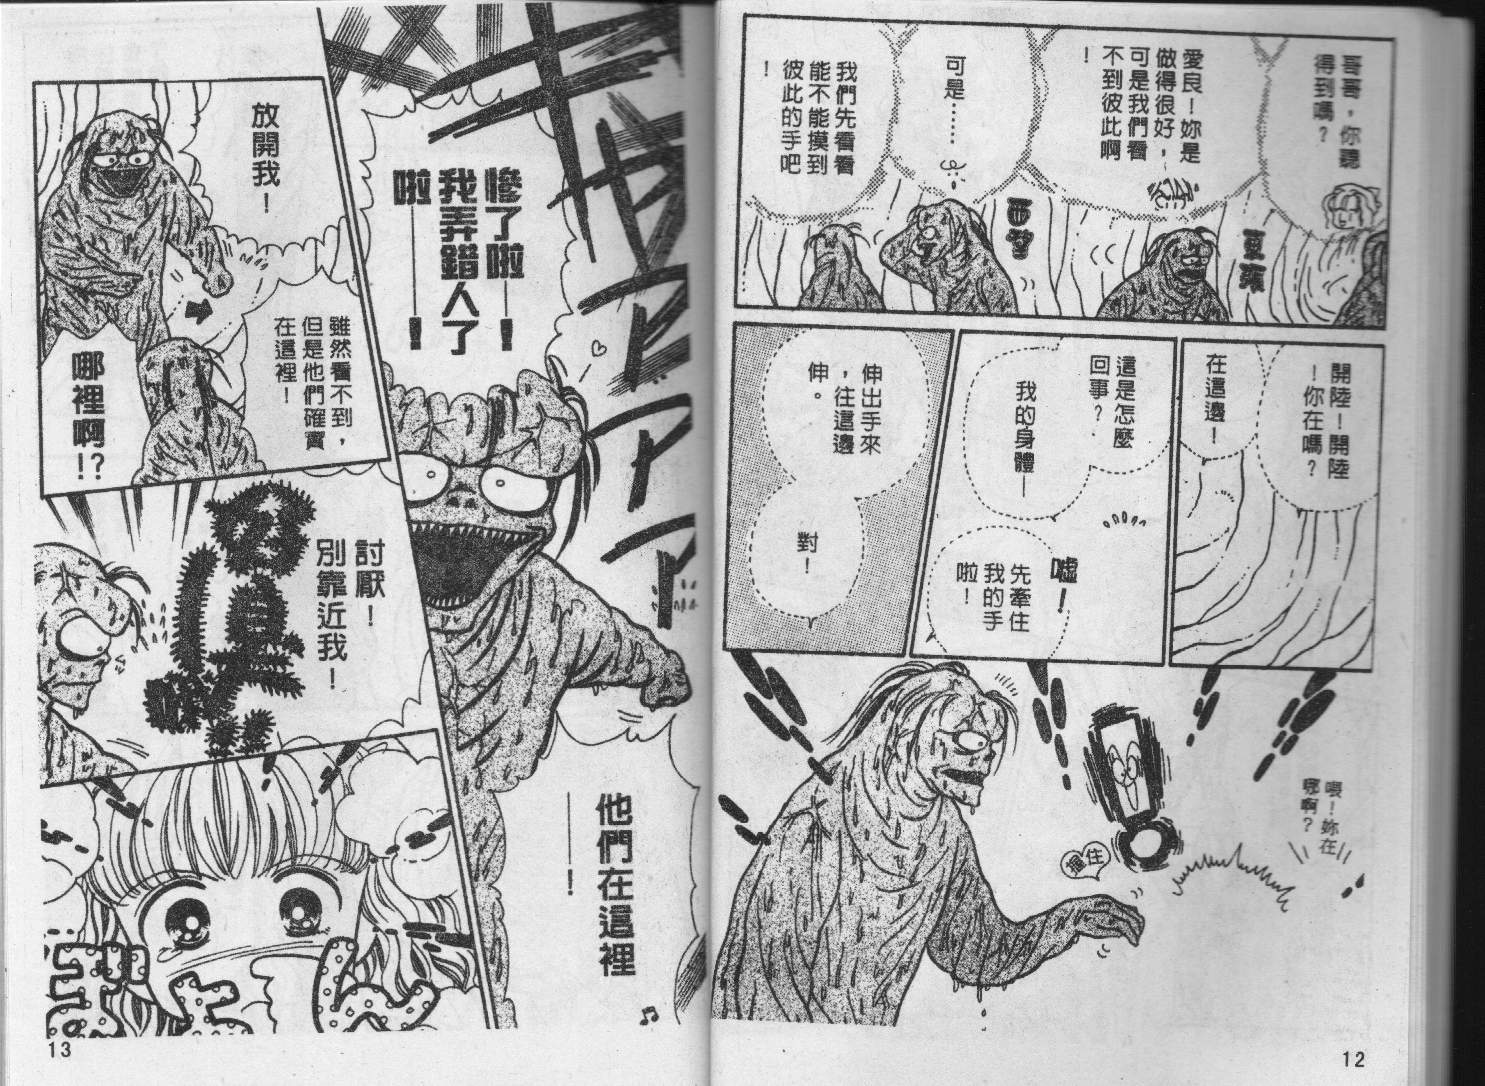 哥哥，你聽
得到嗎？
愛良！妳是
做得很好，
可是我們看
不到彼此啊
！
可是……
我們先看看
能不能摸到
彼此的手吧
！
開陸！開陸
！你在嗎？
在這邊！
這是怎麼
回事？
我的身體—
噓！
先牽住
我的手
啦！
伸出手來
，往這邊
伸。
對！
喂！妳在
哪啊？
12
慘了啦——！
我弄錯人了
啦——！
他們在這裡
——！
放開我！
雖然看不到，
但是他們確實
在這裡！
哪裡啊！？
討厭！
別靠近我！
13